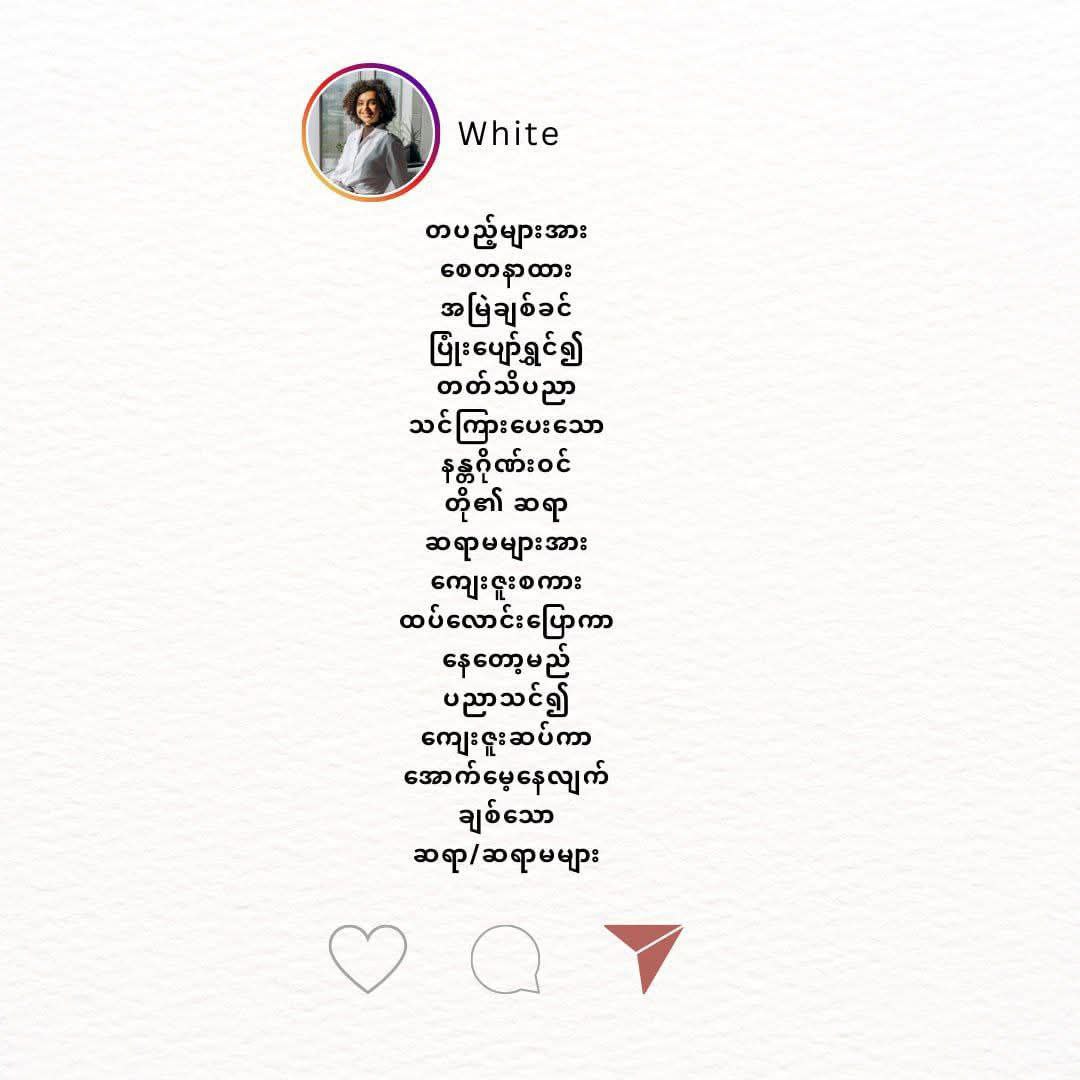 White
တပည့်များအား
စေတနာထား
အမြဲချစ်ခင်
ပြုံးပျော်ရွှင်၍
တတ်သိပညာ
သင်ကြားပေးသော
နန္တဂိုဏ်းဝင်
တို့၏ ဆရာ
ဆရာမများအား
ကျေးဇူးစကား
ထပ်လောင်းပြောကာ
နေတော့မည်
ပညာသင်၍
ကျေးဇူးဆပ်ကာ
အောက်မေ့နေလျက်
ချစ်သော
ဆရာ/ဆရာမများ